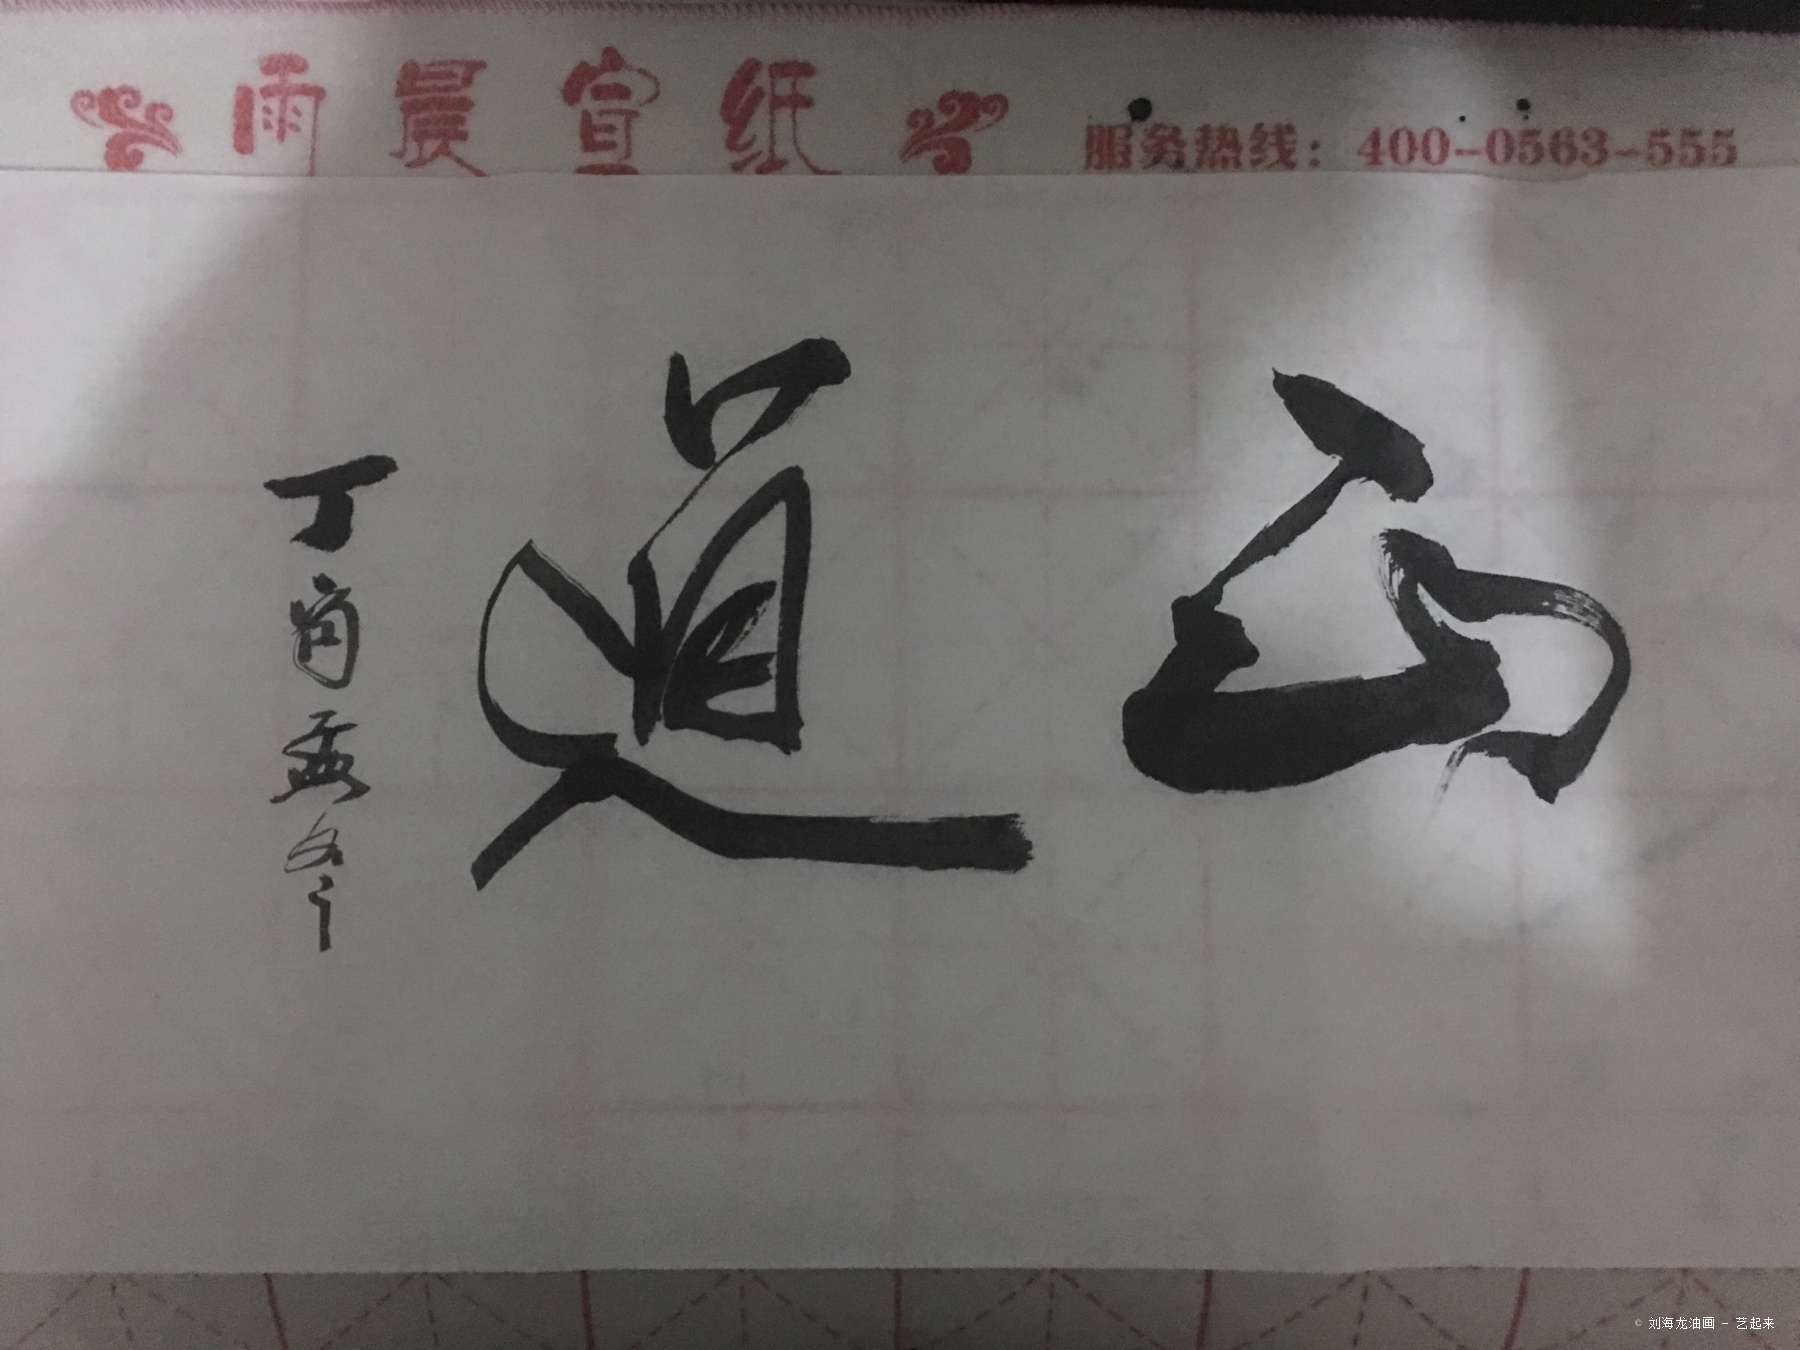 雨晨宣纸
服务热线：400-0563-555
道
丁酉孟冬
© 刘海龙油画 - 艺起来